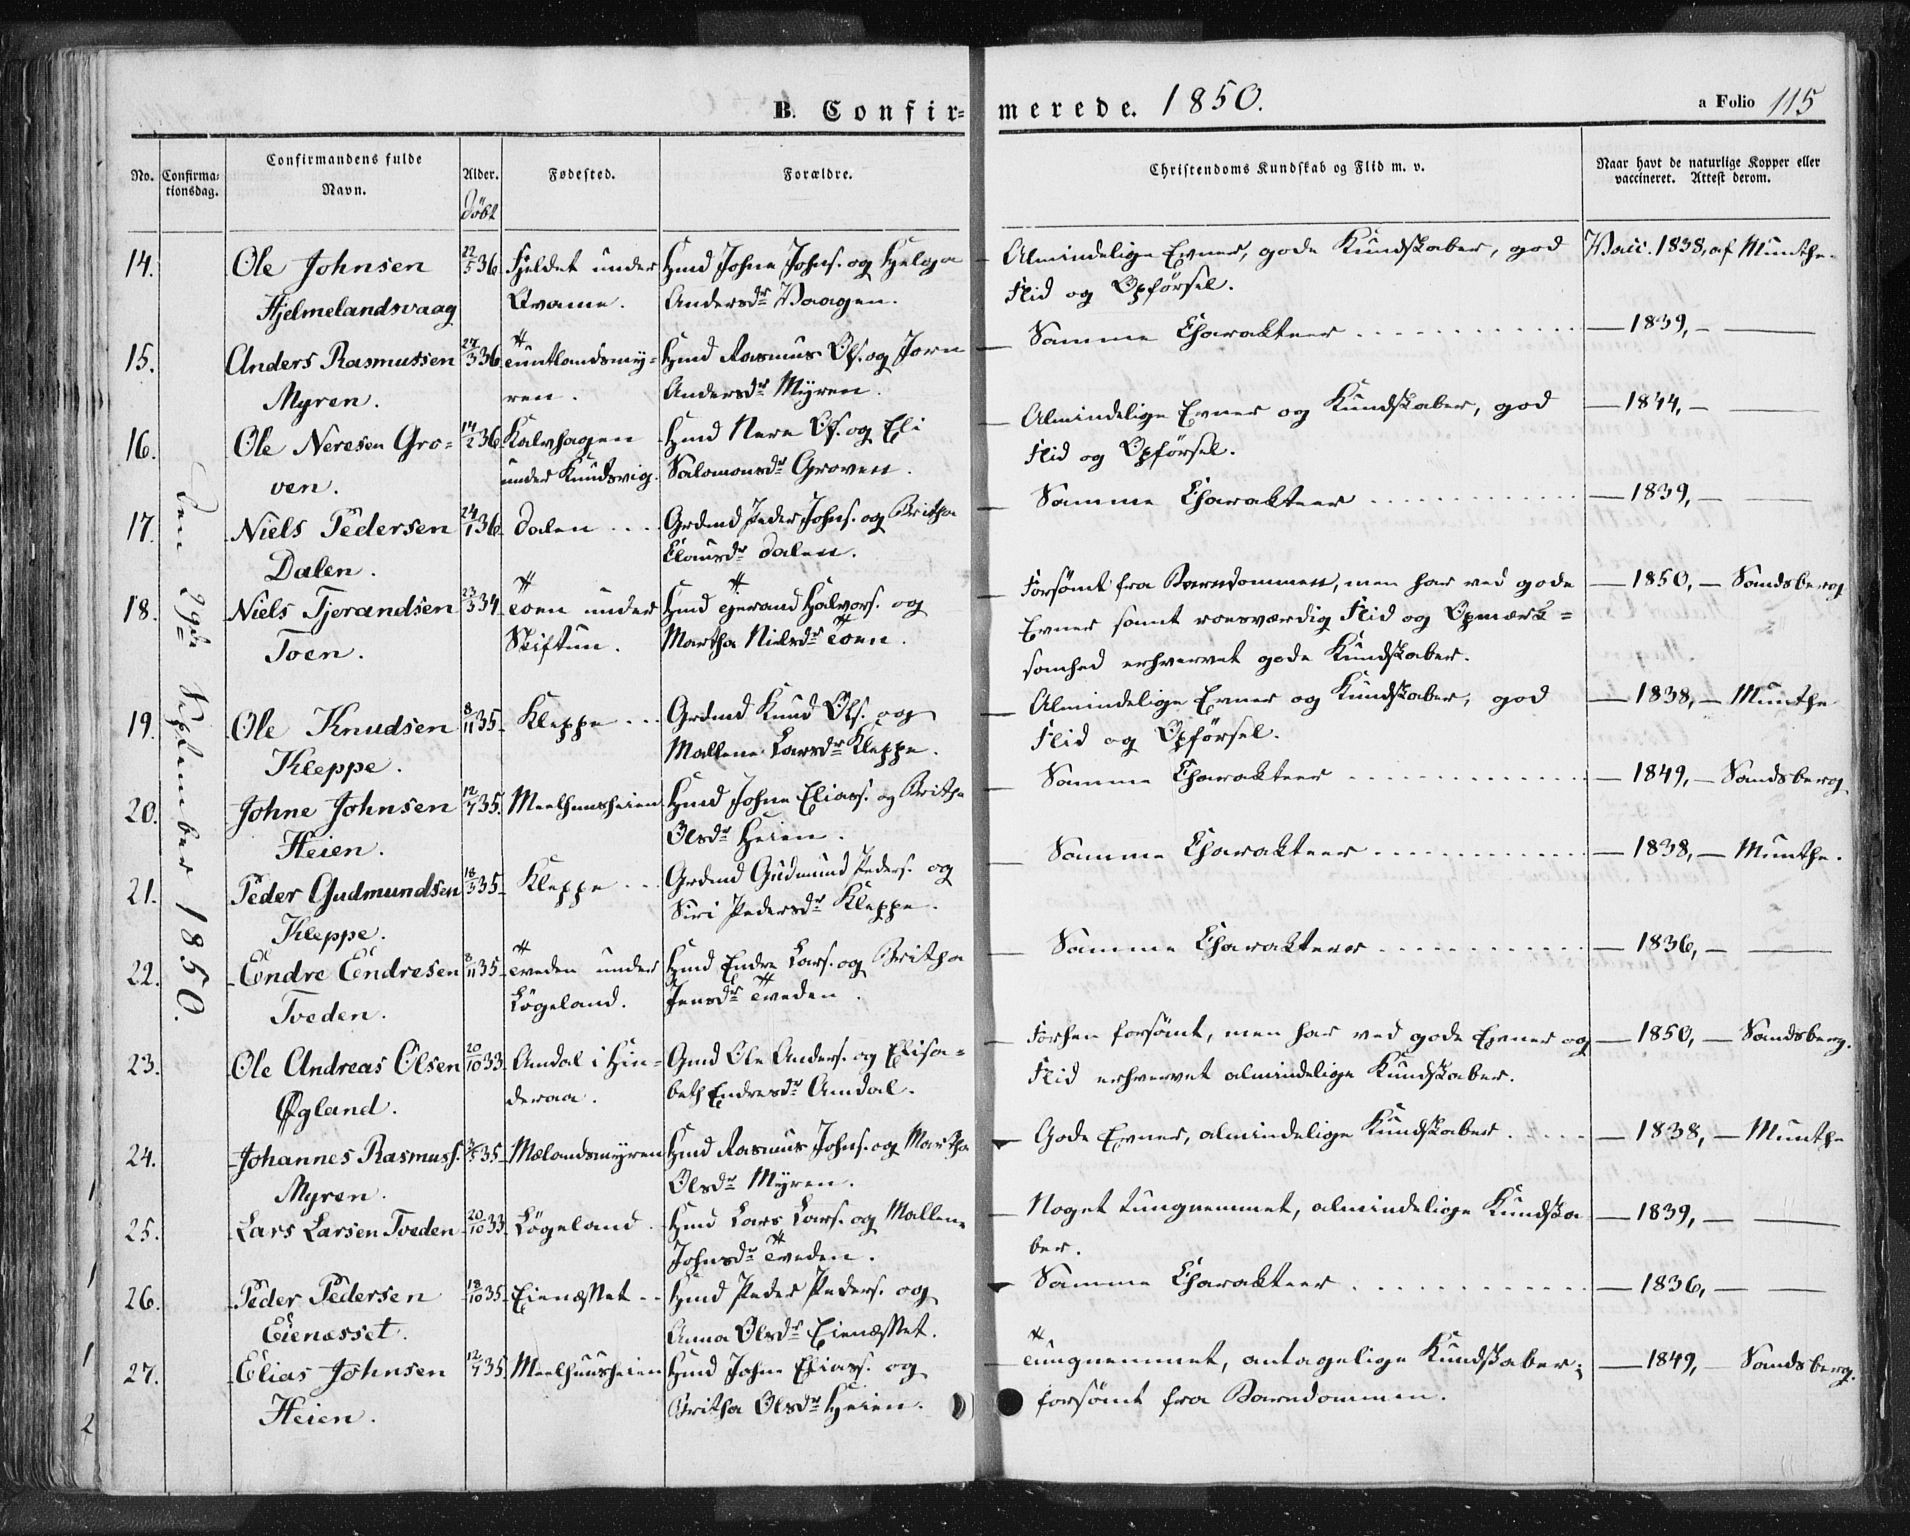 B. Confir-
merede. 1850.
a Folio 115
No.
Confirma-
tionsdag.
Confirmandens fulde
Navn.
Alder.
Döbt
Fødested.
Forældre.
Christendoms Kundskab og Flid m. v.
Naar havt de naturlige Kopper eller
vaccineret. Attest derom.
den 29de September 1850.
14. Ole Johnsen 22/5 36. Fjeldet under Hmd Johne Johns. og Helga Almindelige Evner, gode Kundskaber, god Vacc. 1838, af Munthe.
Hjelmelandsvaag Qvame. Andersdr Vaagen. Flid og Opførsel.
15. Anders Rasmussen 24/3 36 Hmd Rasmus Ols. og Jorn Samme Charakteer — 1839, — —
Myren. ren. Andersdr Myren.
16. Ole Neresen Gro- 14/2 36 Kalvhagen Hmd Nere Ols. og Eli Almindelige Evner og Kundskaber, god — 1844, — —
ven. under Knudsvig. Salomonsdr Groven. Flid og Opførsel.
17. Niels Pedersen 24/1 36 Dalen Grdmd Peder Johns. og Britha Samme Charakteer — 1839, — —
Dalen. Clausdr Dalen.
18. Niels Tjerandsen 23/3 34 Toen under Hmd Tjerand Halvors. og Forsömt fra Barndommen, men har ved gode — 1850, — Sandsberg
Toen. Skiftun. Martha Nielsdr Toen. Evner samt roesværdig Flid og Opmærk-
somhed erhvervet gode Kundskaber.
19. Ole Knudsen 8/11 35 Kleppe Grdmd Knud Ols. og Almindelige Evner og Kundskaber, god — 1838, — Munthe
Kleppe. Mallene Larsdr Kleppe. Flid og Opførsel.
20. Johne Johnsen 12/7 35. Meelhuusheien Hmd Johne Elias. og Britha Samme Charakteer — 1849, — Sandsberg
Heien. Olsdr Heien.
21. Peder Gudmundsen 18/3 35 Kleppe Grdmd Gudmund Peders. og Samme Charakteer — 1838, — Munthe.
Kleppe. Siri Pedersdr Kleppe.
22. Endre Endresen 8/11 35 Tveden under Hmd Endre Lars. og Britha Samme Charakteer — 1836, — —
Tveden. Lögeland. Jensdr Tveden.
23. Ole Andreas Olsen 20/10 33 Amdal i Hin- Gmd Ole Anders. og Elisa- Forhen forsömt, men har ved gode Evner og — 1850, — Sandsberg.
Øgland. deraa. beth Endresdr Amdal. Flid erhvervet almindelige Kundskaber.
24. Johannes Rasmuss. 35 Mælandsmyren Hmd Rasmus Johns. og Martha Gode Evner, almindelige Kundskaber — 1838, — Munthe
Myren. Olsdr Myren.
25. Lars Larsen Tveden 20/10 33 Lögeland Hmd Lars Lars. og Mallene Noget tungnemmet, almindelige Kundska — 1839, — —
Johnsdr Tveden. ber.
26. Peder Pedersen 18/10 35 Eienæsset Hmd Peder Peders. og Samme Charakteer — 1836, — —
Eienæsset. Anna Olsdr Eienæsset.
27. Elias Johnsen 12/7 35 Meelhuusheien Hmd Johne Elias. og Tungnemmet, antagelige Kundskaber; — 1849, — Sandsberg.
Heien. Britha Olsdr Heien. forsömt fra Barndommen.